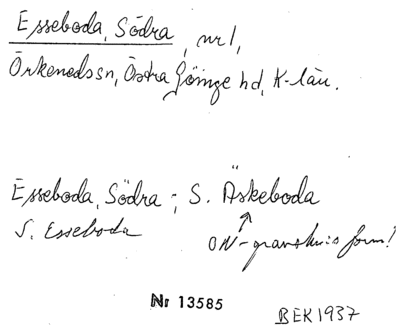 Esseboda, Södra, nr 1,
Örkenedssn, Östra Göinge hd, K-län.
Esseboda, Södra -; S. Äskeboda
S. Esseboda
ON-gransknis form!
Nr 13585
BEK 1937